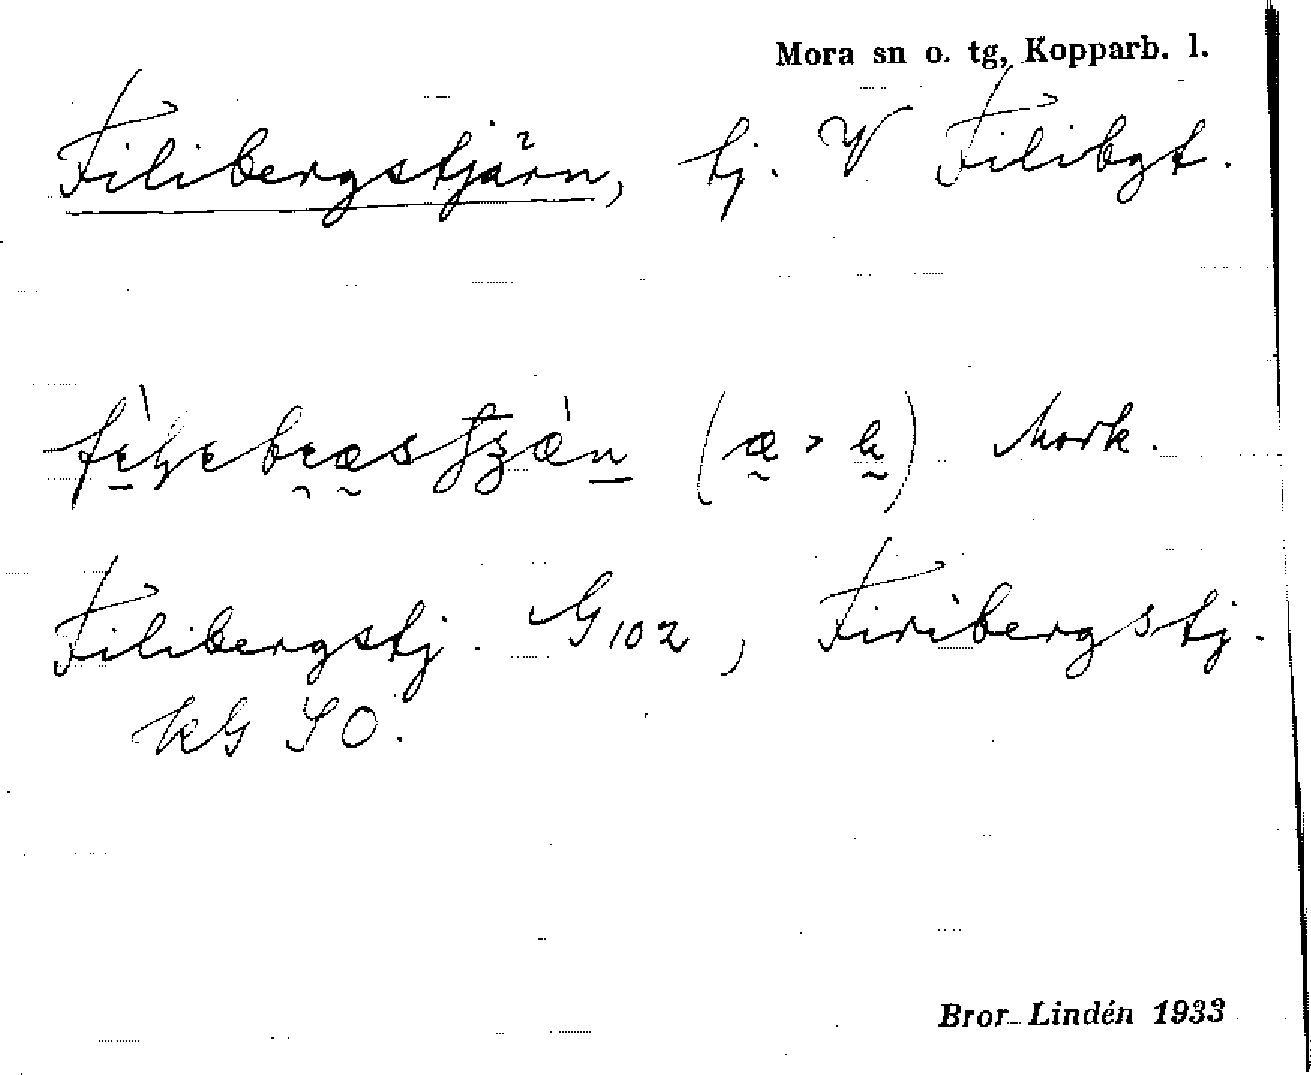 Mora sn o. tg, Kopparb. l.
Filibergstjärn, tj. V Filibgt.
Mork.
Filibergstj. G 102, Firibergstj.
KG SO.
Bror Lindén 1933